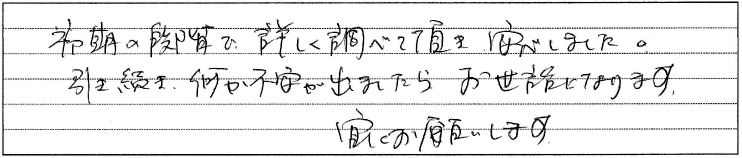 初期の段階で、詳しく調べて頂き 安心しました。
引き続き、何か不安が出ましたら お世話になります。
宜しくお願いします。